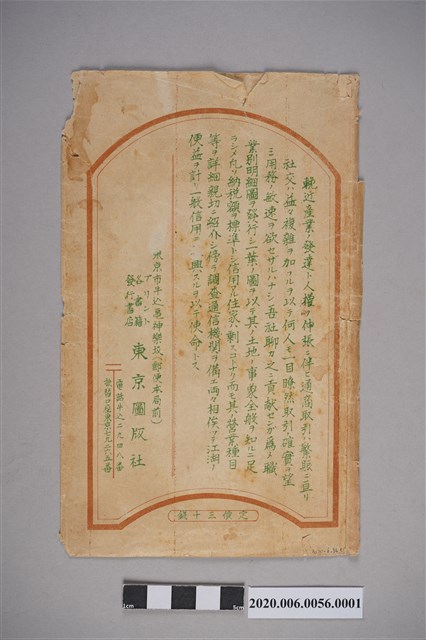 輓近産業ノ發達ト人權ノ伸張ニ伴ヒ通商取引ハ繁報ニ亘リ
社交ハ益々複雜ヲ加フルヲ以テ何人モ一目瞭然取引ノ確實ヲ望
ミ用務ノ敏速ヲ欲セザルハナシ吾社聊カ之ニ貢献センガ爲メ職
業別明細圖ヲ發行シ一葉ノ圖ヲ以テ其ノ土地ノ事業全般ヲ知ルニ足
ラシメ凡ソ納税額ヲ標準トシ信用アル住家ハ剩スコトナク而モ其ノ營業種目
等ヲ詳細親切ニ紹介シ傍ラ調査通信機関ヲ備エ両々相俟ッテ江湖ノ
便益ヲ計リ一般信用ヲ興スルヲ以テ使命トス
東京市牛込區神樂坂(郵便本局前)
プリント
各書籍
發行書店
東京圖版社
電話牛込二九四八番
振替口座東京七九二六五番
定價三十錢
1cm
5cm
2020.006.0056.0001